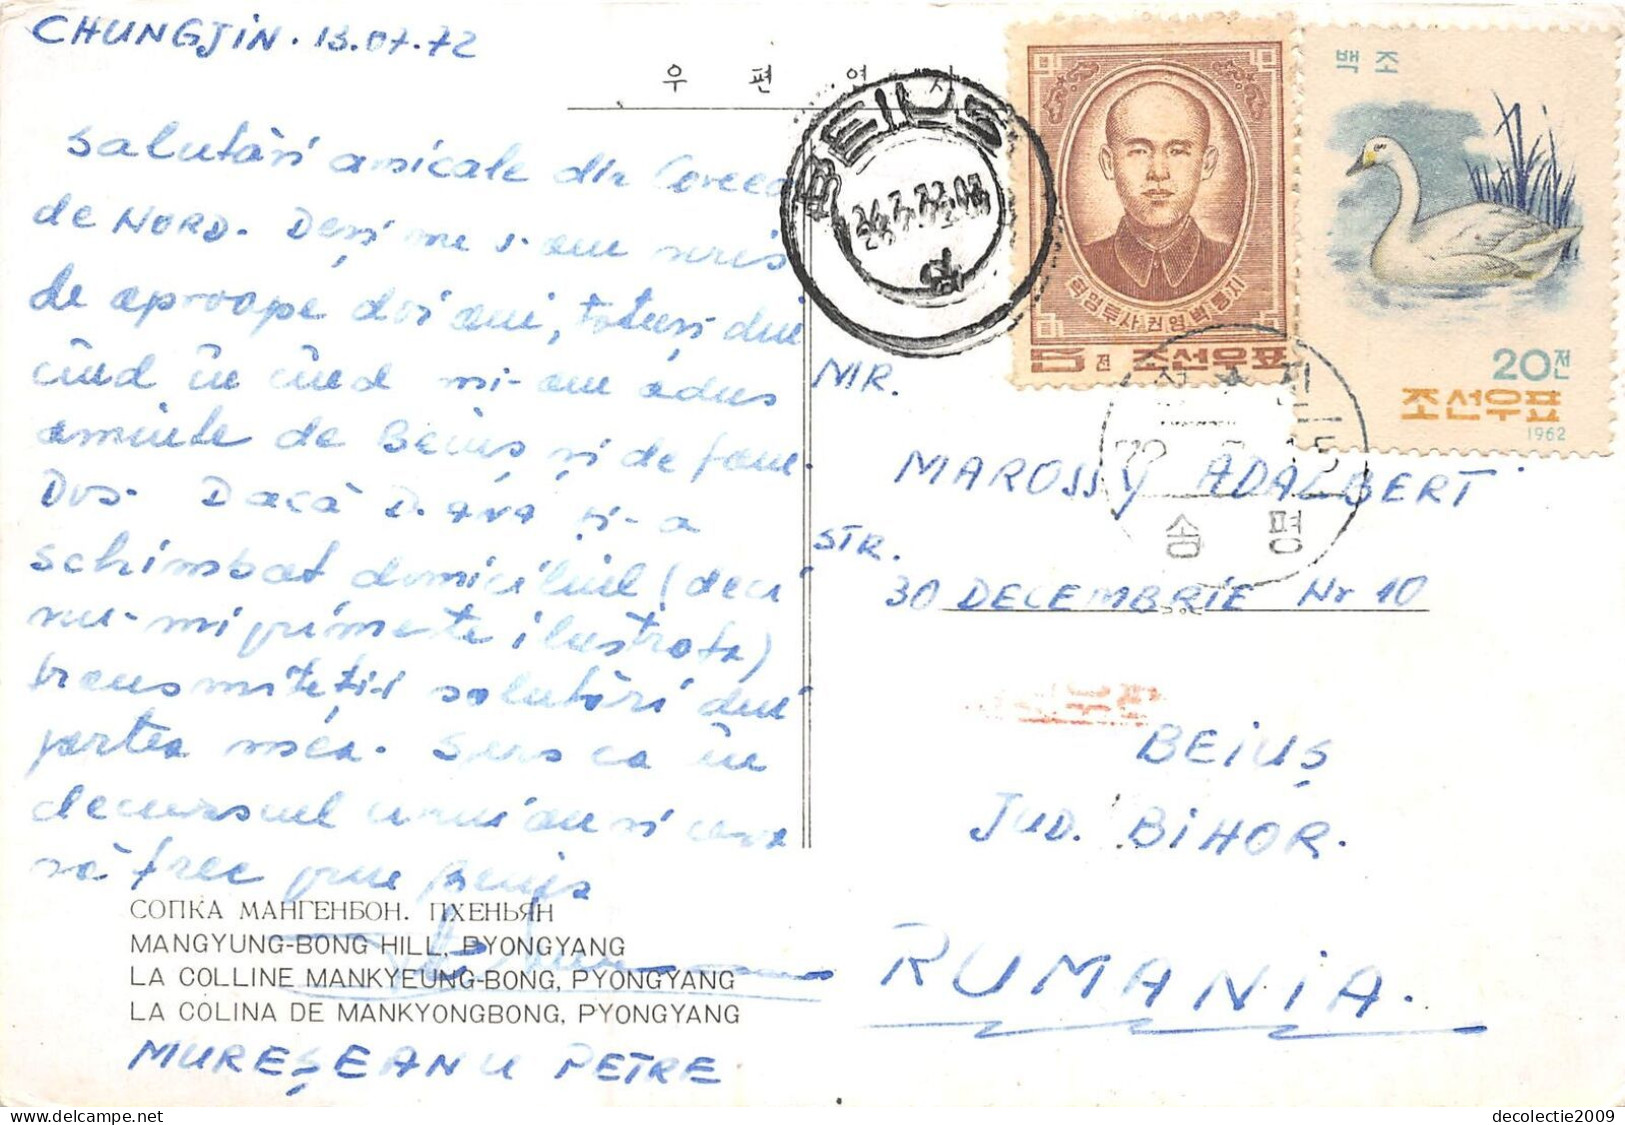 CHUNGJIN. 13.07.72
우 편 엽 서
salutări amicale din Coreea
de NORD. Deși nu v-am scris
de aproape doi ani, totuși din
cînd în cînd mi-am adus
aminte de Beiuș și de fam.
Dvs. Dacă D.
și-a
schimbat domiciliul (deci
nu-mi primește ilustrata)
transmiteți-i salutări din
partea mea. Sper ca în
decursul
să trec prin Beiuș
СОПКА МАНГЕНБОН. ПХЕНЬЯН
MANGYUNG-BONG HILL, PYONGYANG
LA COLLINE MANKYEUNG-BONG, PYONGYANG
LA COLINA DE MANKYONGBONG, PYONGYANG
MUREȘEANU PETRE
BEIUS
24.7.72.07
혁명투사 권영벽동지
5전 조선우표
백조
20전
조선우표
1962
송 평
NR.
MAROSSY ADALBERT
STR.
30 DECEMBRIE Nr 10
BEIUȘ
JUD. BIHOR.
RUMANIA.
decolectie2009